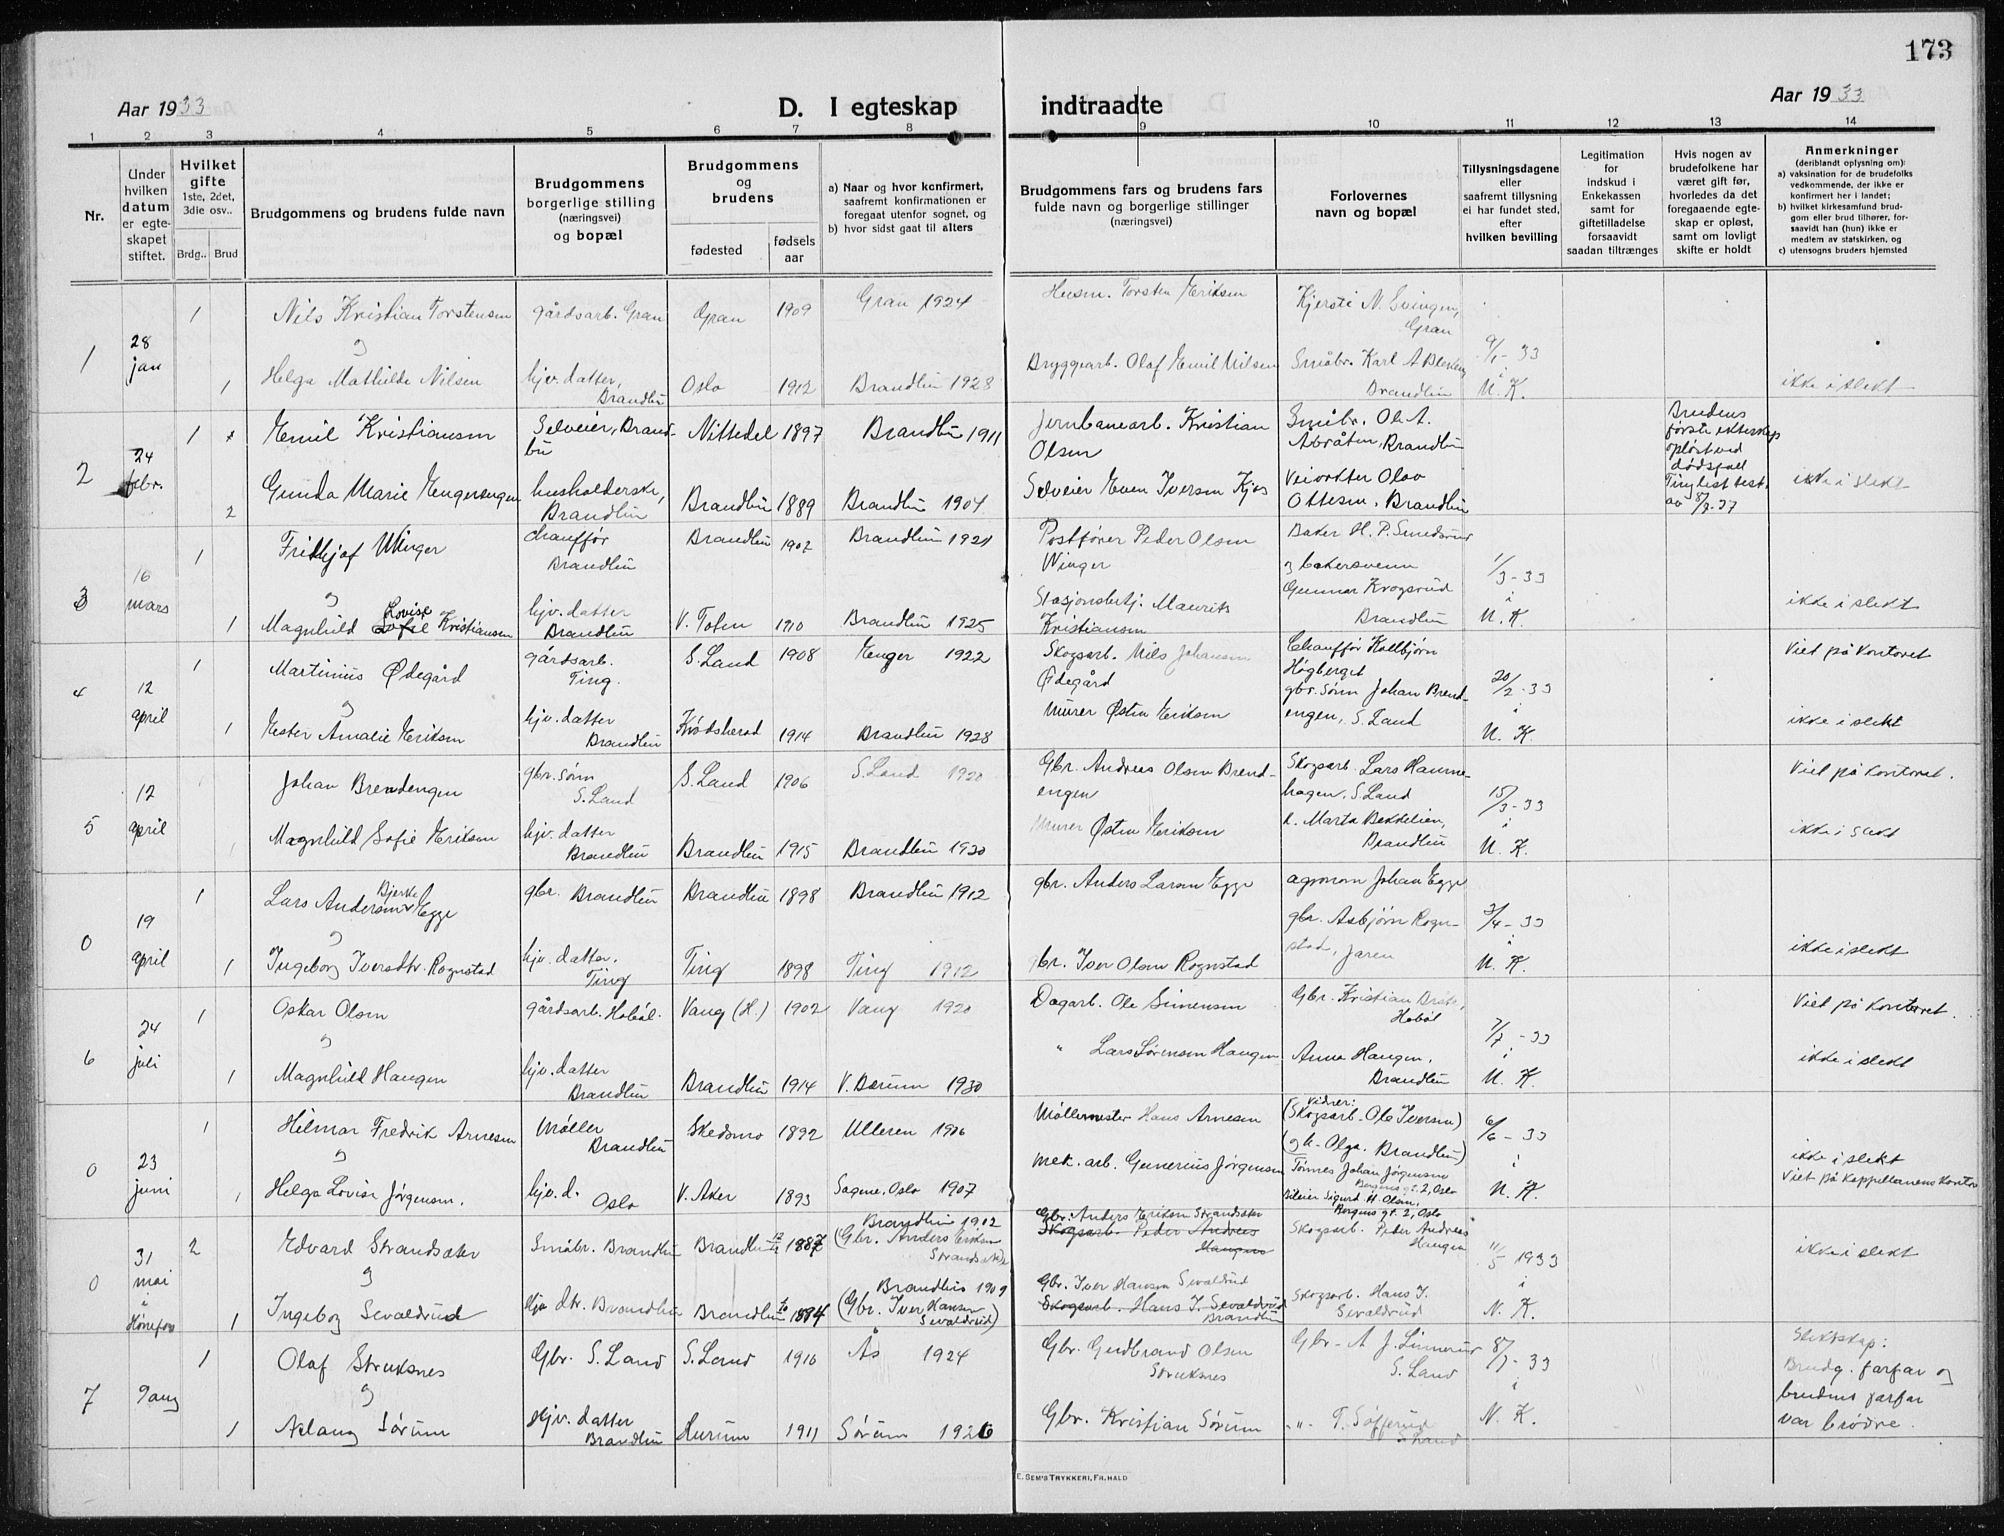 173
Aar 1933
D. I egteskap
indtraadte
Aar 1933
1 2 3 4 5 6 7 8 9 10 11 12 13 14
Nr.
Under
hvilken
datum
er egte-
skapet
stiftet.
Hvilket
gifte
1ste, 2det,
3die osv..
Brdg.. Brud
Brudgommens og brudens fulde navn
Brudgommens
borgerlige stilling
(næringsvei)
og bopæl
Brudgommens
og
brudens
fødested
fødsels
aar
a) Naar og hvor konfirmert,
saafremt konfirmationen er
foregaat utenfor sognet, og
b) hvor sidst gaat til alters
Brudgommens fars og brudens fars
fulde navn og borgerlige stillinger
(næringsvei)
Forlovernes
navn og bopæl
Tillysningsdagene
eller
saafremt tillysning
ei har fundet sted,
efter
hvilken bevilling
Legitimation
for
indskud i
Enkekassen
samt for
giftetilladelse
forsaavidt
saadan tiltrænges
Hvis nogen av
brudefolkene har
været gift før,
hvorledes da det
foregaaende egte-
skap er opløst,
samt om lovligt
skifte er holdt
Anmerkninger
(deriblandt oplysning om):
a) vaksination for de brudefolks
vedkommende, der ikke er
konfirmert her i landet;
b) hvilket kirkesamfund brud-
gom eller brud tilhører, for-
saavidt han (hun) ikke er
medlem av statskirken, og
c) utensogns bruders hjemsted
1
28
jan
1 Nils Kristian Torstensen gårdsarb. Gran Gran 1909 Gran 1924 Husm. Torsten Eriksen Kjersti N. Svingen,
Gran
og
9/1-33
i
N. K.
1 Helga Mathilde Nilsen hjv. datter, Oslo 1912 Brandbu 1928 Bryggearb. Olaf Emil Nilsen Småbr. Karl A
Brandbu
Brandbu
ikke i slekt
2
24
febr.
1 Emil Kristiansen Selveier, Brand- Nittedal 1897 Brandbu 1911 Jernbanearb. Kristian Småbr. Ole A.
bu
Olsen
Brandbu
Brudens
første ekteskap
opløst ved
dødsfall
2 Gunda Marie Engerengen husholderske, Brandbu 1889 Brandbu 1904 Selveier Even Iversen Kjos Veivokter Olav
Brandbu
Ottesen, Brandbu
ikke i slekt
3
16
mars
1 Fridtjof Winger chauffør Brandbu 1902 Brandbu 1921 Postfører Peder Olsen Baker H. P. Smedsrud
Brandbu
Winger
og bakersvenn
1/3-33
i
N. K.
og
1 Magnhild Lovise Sofie Kristiansen hjv. datter V. Toten 1910 Brandbu 1925 Stasjonsbetj. Maurits Gunnar Krogsrud
Brandbu
Kristiansen
Brandbu
ikke i slekt
4
12
april
1 Martinius Ødegård gårdsarb. S. Land 1908 Enger 1922 Skogsarb. Nils Johansen Chauffør Kolbjørn
Ting.
Ødegård
Høgberget
Viet på kontoret
og
20/2-33
i
N. K.
1 Ester Amalie Eriksen hjv. datter Krødsherad 1914 Brandbu 1928 Murer Østen Eriksen gbr. sønn Johan Brend-
Brandbu
engen, S. Land
ikke i slekt
5
12
april
Johan Brendengen gbr. sønn S. Land 1906 S. Land 1920 Gbr. Andreas Olsen Brend- Skogsarb. Lars Hanne-
S. Land
engen
hagen, S. Land
Viet på kontoret.
15/3-33
i
N. K.
Magnhild Sofie Eriksen hjv. datter Brandbu 1915 Brandbu 1930 Murer Østen Eriksen Marta Bekkelien,
Brandbu
Brandbu
ikke i slekt
0
19
april
1 Lars Andersen Bjerke Egge gbr. Brandbu Brandbu 1898 Brandbu 1912 gbr. Anders Larsen Egge agronom Johan Egge
og
3/4-33
i
N. K.
1 Ingeborg Iversdtr. Rognstad hjv. datter. Ting 1898 Ting 1912 gbr. Iver Olsen Rognstad gbr. Asbjørn Rogn-
Ting
stad, Jaren
ikke i slekt
6
24
juli
1 Oskar Olsen gårdsarb. Hobøl. Vang (H.) 1902 Vang 1920 Dagarb. Ole Simensen Gbr. Kristian
Hobøl
Viet på kontoret.
og
7/7-33
i
N. K.
1 Magnhild Haugen hjv. datter Brandbu 1914 V. Bærum 1930 " Lars Sørensen Haugen Anna Haugen,
Brandbu
Brandbu
ikke i slekt
0
23
juni
1 Hilmar Fredrik Arnesen Møller Skedsmo 1892 Ulleren 1906 Møllermester Hans Arnesen Vidner:
Brandbu
(Skogsarb. Ole Iversen)
(og h. Olga. Brandbu)
og
6/6-33
i
N. K.
1 Helga Lovise Jørgensen. hjv. d. V. Aker 1893 Sagene, Oslo 1907 mek. arb. Gunerius Jørgensen Tønnes Johan Jørgensen
Oslo
Bergens gt. 2, Oslo
Bileier Sigurd H. Olsen,
Bergens gt. 2, Oslo
ikke i slekt
Viet på kappellanens kontor
0
31
mai
i
Hønefoss
2 Edvard Strandsæter Småbr. Brandbu Brandbu 1887 Brandbu 1902
(Gbr. Anders Eriksen
Strandsæter
Gbr. Anders Eriksen Strandsæter
Skogsarb. Peder Andreas
Haugen
Skogsarb. Peder Andreas
Haugen
11/5 1933
i
N. K.
ikke i slekt
og
1 Ingeborg Sevaldrud Hjv. dtr. Brandbu Brandbu 1894 Brandbu 1909
(Gbr. Iver Hansen
Sevaldrud)
Gbr. Iver Hansen Sevaldrud
Skogsarb. Hans I. Sevaldrud
Brandbu
Skogsarb. Hans I.
Sevaldrud
7
9 aug
1 Olaf Struksnes Gbr. S. Land S. Land 1910 Ås 1924 Gbr. Gudbrand Olsen Gbr. A. J. Linnerud
Struksnes
S. Land
og
8/7-33
i
N. K.
1 Aslaug Sørum Hjv. datter Hurum 1911 Sørum 1926 Gbr. Kristian Sørum "
Brandbu
S. Land
Slektskap:
Brudg. farfar og
brudens farfar
var brødre.
E. SEM'S TRYKKERI, FR.HALD